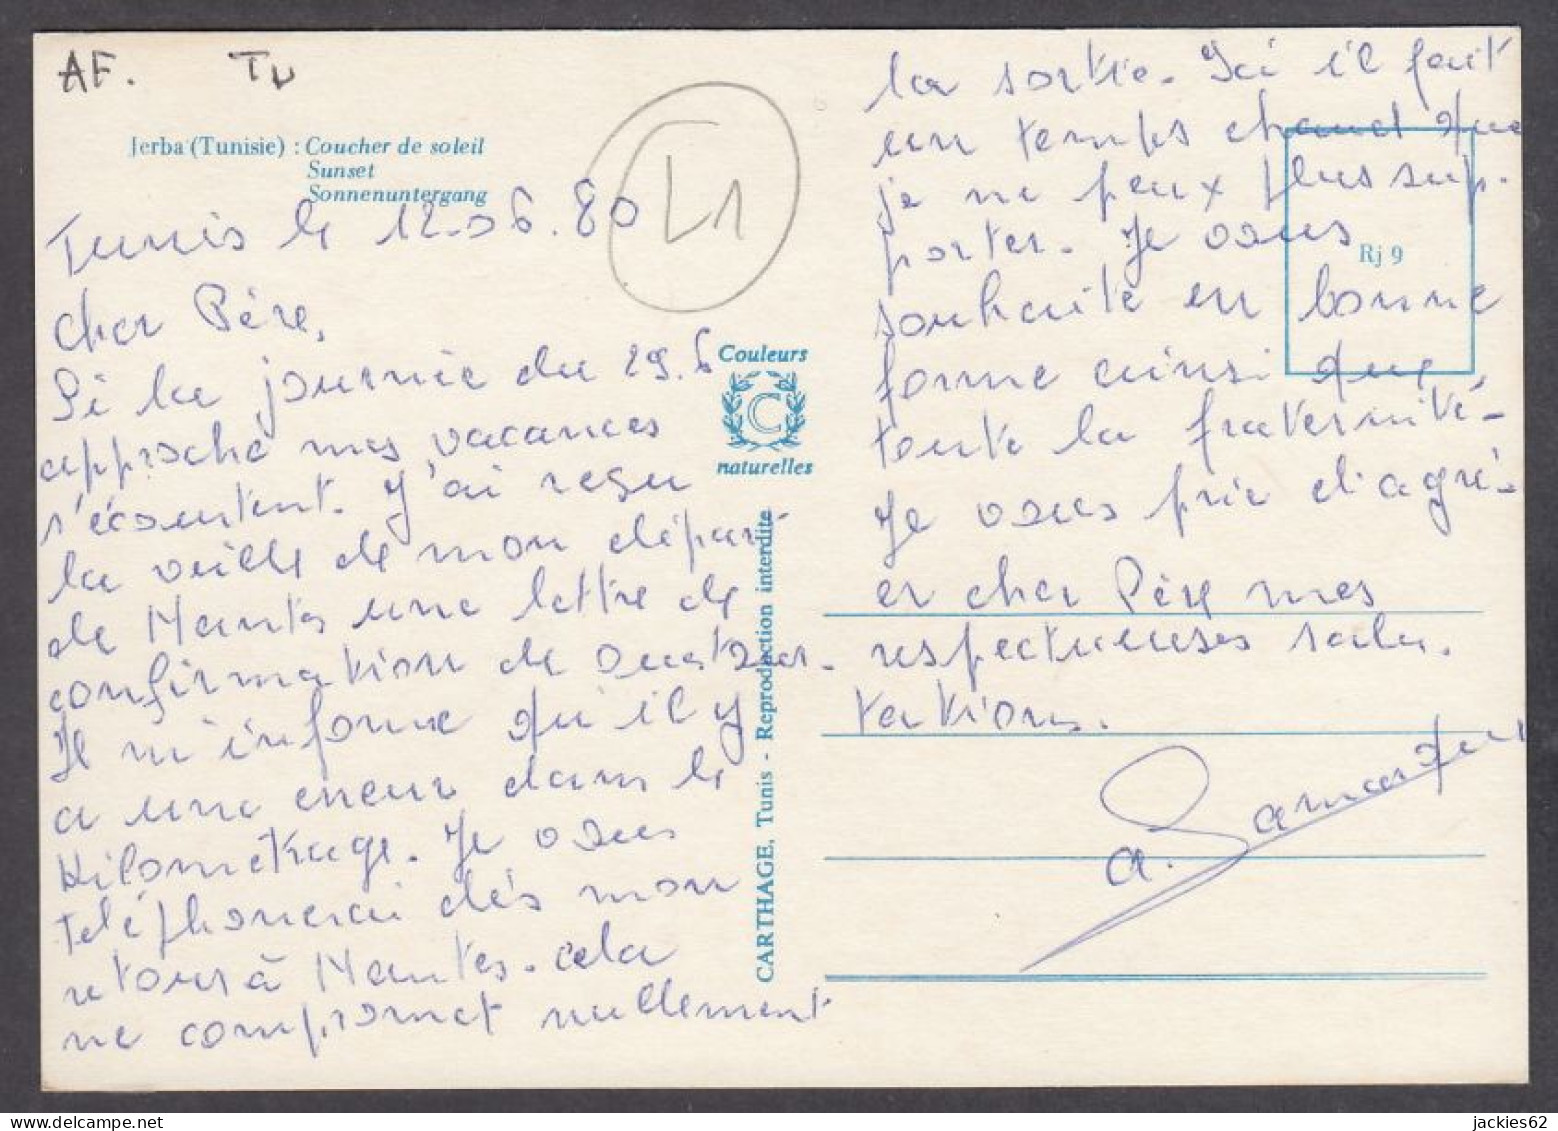 AF. Tu
Jerba (Tunisie) : Coucher de soleil
Sunset
Sonnenuntergang
L1
Tunis le 12.06.80
Cher Père,
Si la journée du 29.6
approche mes vacances
s'écourtent. J'ai reçu
la veille de mon départ
de Nantes une lettre de
confirmation de
Il m'informe qu'il y
a une erreur dans le
Kilométrage. Je vous
téléphonerai dès mon
retour à Nantes. cela
ne compromet nullement
Couleurs
C
naturelles
CARTHAGE, Tunis - Reproduction interdite
la sortie. Ici il fait
un temps chaud que
je ne peux plus sup-
porter. Je vous
souhaite en bonne
forme ainsi que
toute la fraternité.
Je vous prie d'agré-
er cher Père mes
respectueuses salu-
tations.
Rj 9
a.
jackies62